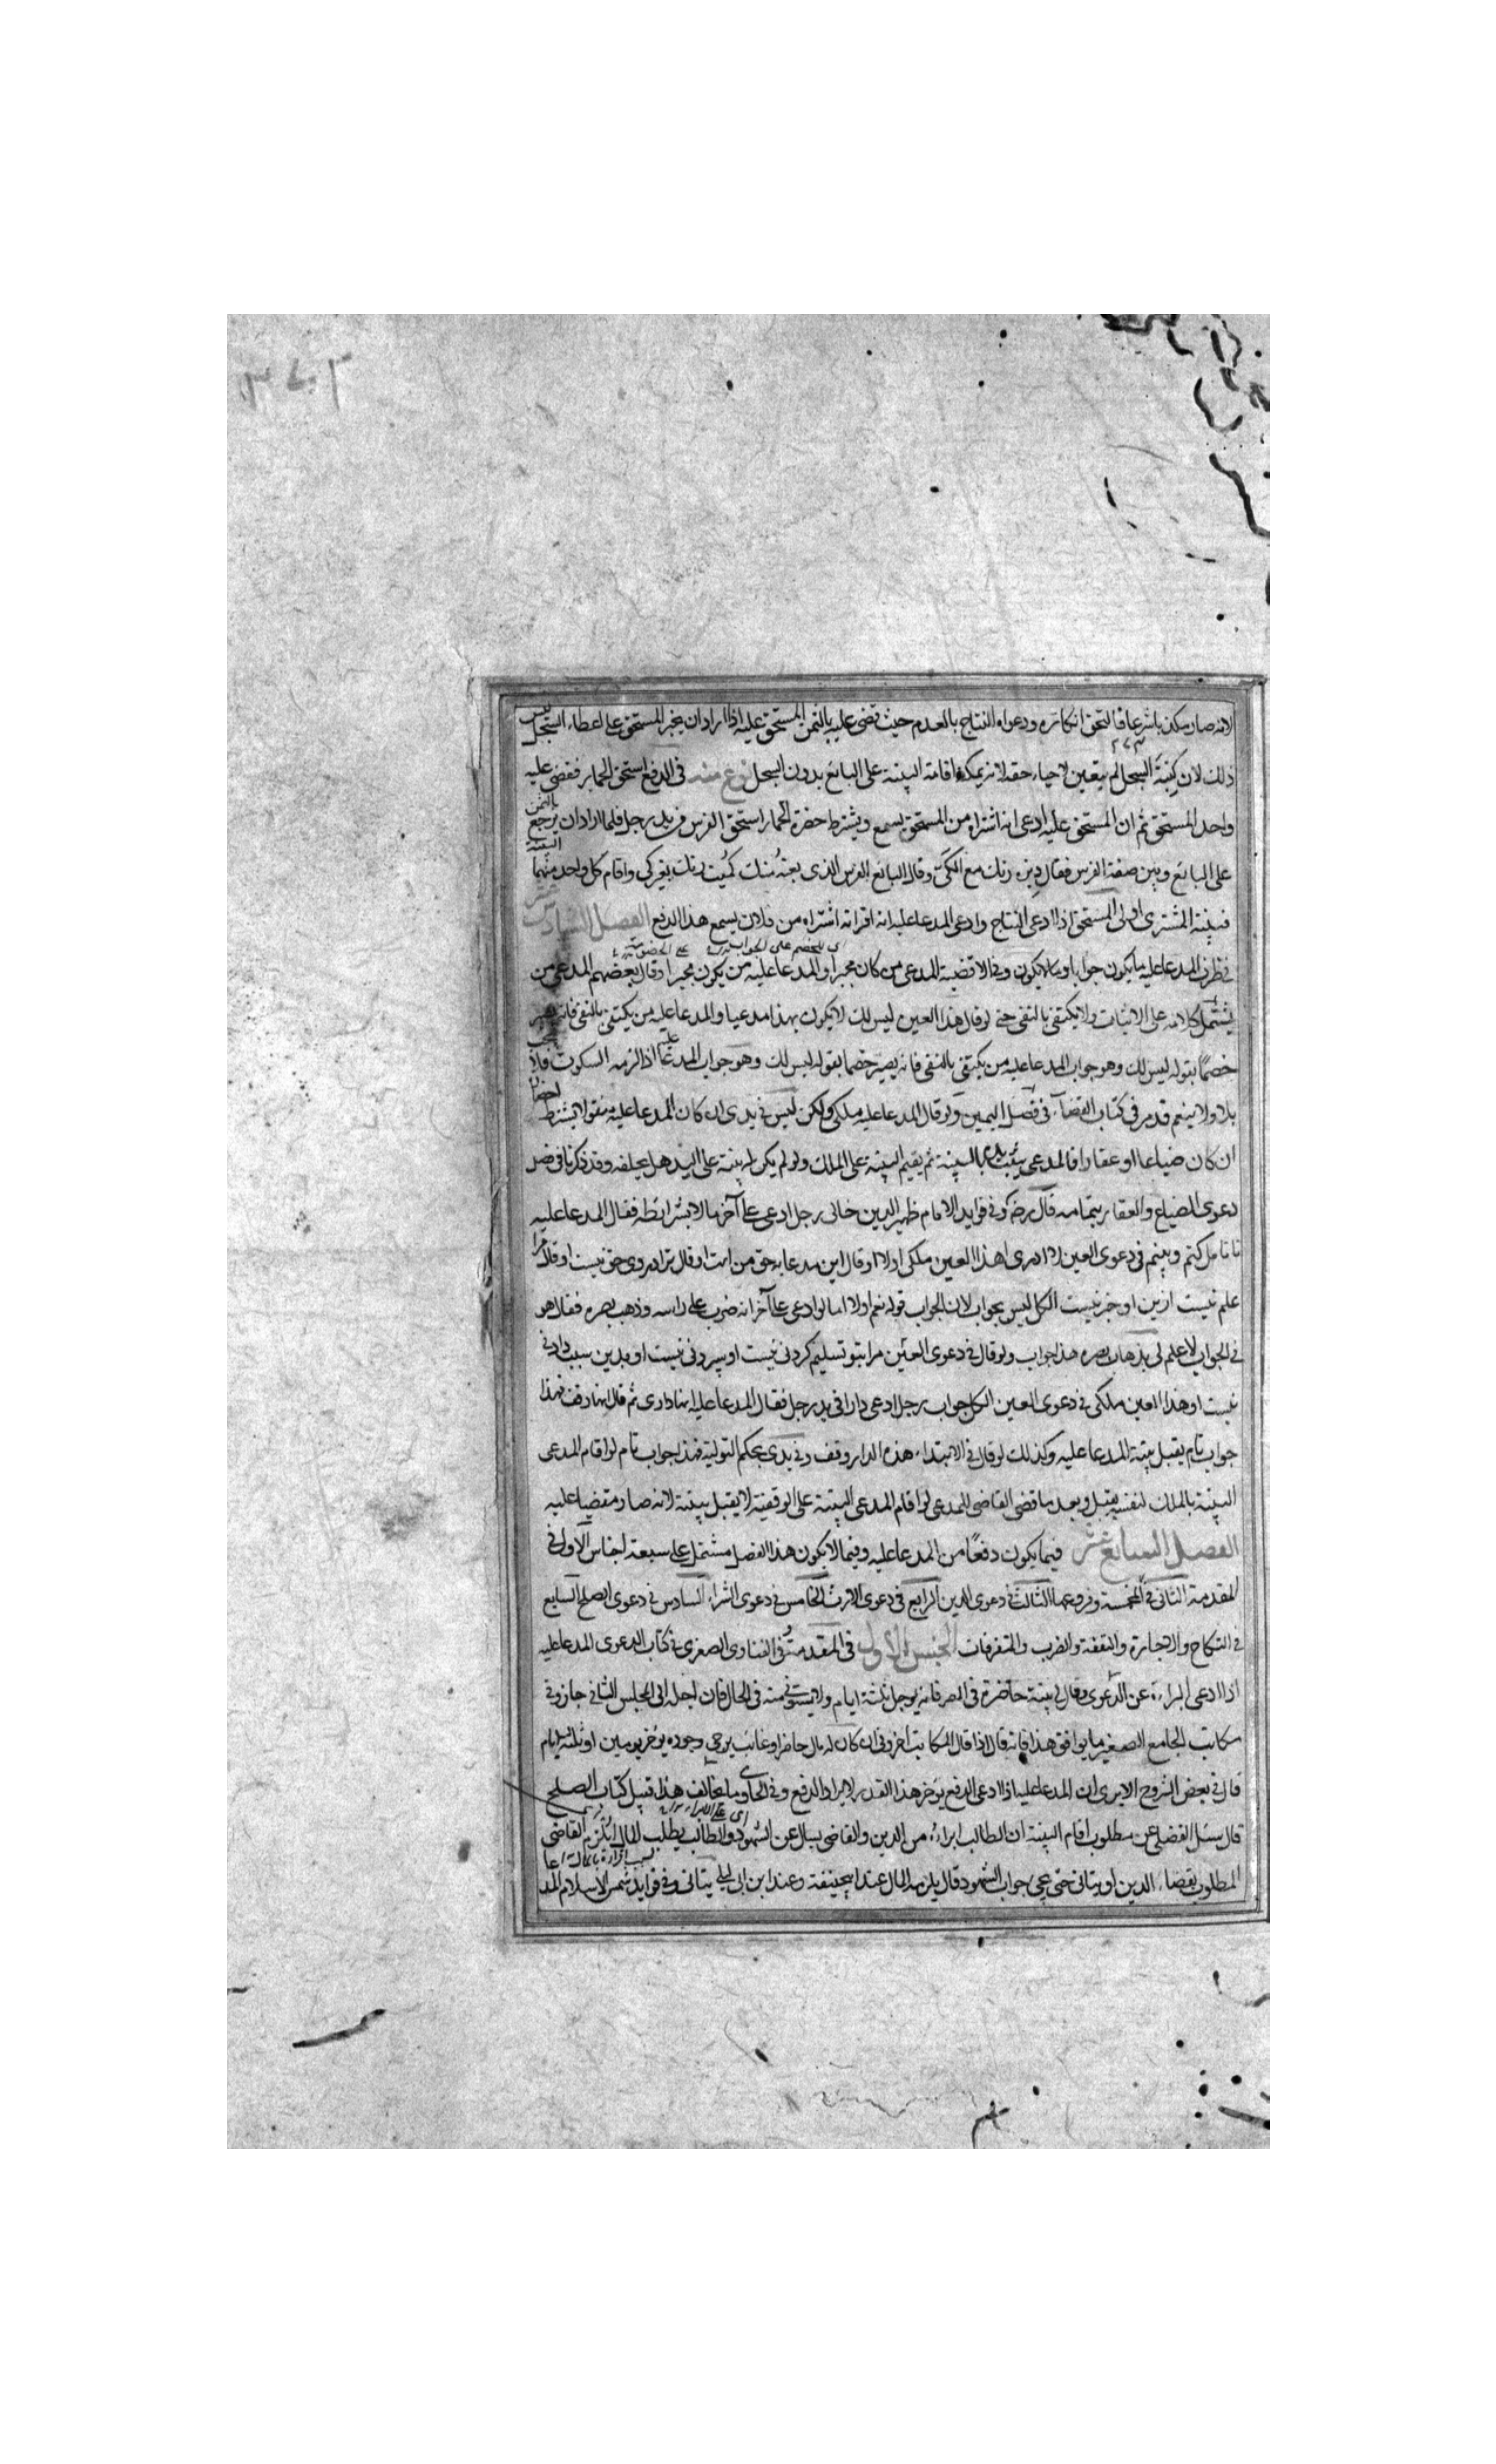 لانه صار مكذبا شرعا فالتحق انكاره ودعواه النتاج بالعدم حيث قضى عليه بالثمن المستحق عليه اذا اراد ان يجبر المستحق على اعطاء السجل ليس
٢٧٣
ذلك لان كتبة السجل لم يتعين لاحياء حقه لانه يمكنه اقامة البينة على البائع بدون السجل نوع منه في الدفع استحق الحمار فقضى عليه
واحد المستحق ثم ان المستحق عليه ادعى انه اشتراه من المستحق يسمع ويشترط حضرة الحمار استحق الفرس من يد رجل فلما اراد ان يرجع بالثمن
على البائع وبين صفة الفرس فقال ديزه رنك مع الكي وقال البائع الفرس الذي بعته منك كميت رنك بغير كي واقام كل واحد منهما البينة
فبينة المشتري اولى المستحق اذا ادعى النتاج وادعى المدعا عليه انه اقر انه اشتراه من فلان يسمع هذا الدفع الفصل السادس عشر
اي للخصم على الجواب على الخصومة
في المدعا عليه ما يكون جوابا وما لا يكون وفي الاقضية المدعي من كان مخيرا والمدعا عليه من يكون مجبرا وقال بعضهم المدعي من
يشتمل كلامه على الاثبات ولا يكتفي بالنفي حتى لو قال هذا العين ليس لك لا يكون بهذا مدعيا والمدعا عليه من يكتفي بالنفي فانه يصير
خصما بقوله ليس لك وهو جواب المدعا عليه من يكتفي بالنفي فانه يصير خصما بقوله ليس لك وهو جواب المدعا عليه اذا لزمه السكوت فلا يجب
بلا ولا بنعم قد مر في كتاب القضاء في فصل اليمين ولو قال المدعا عليه ملكي ولكن ليس في يدي ان كان المدعا عليه منقولا يشترط احضار
ان كان ضياعا او عقارا فالمدعي يثبت يده بالبينة ثم يقيم البينة على الملك ولو لم يكن له بينة على اليد هل يحلفه وقد ذكرنا في فصل
دعوى الضياع والعقار بتمامه قال رضه وفي فوايد الامام ظهير الدين خالي رجل ادعى على آخر مالا بشرائطه فقال المدعا عليه
تا تامل كنم وبينم في دعوى العين لا ادري اهذا العين ملكي او لا او قال اين مدعا به حق من است او قال ترا در وي حق نيست او قال مرا
علم نيست ازين او خبر نيست الكل ليس بجواب لان الجواب قوله نعم او لا اما لو ادعى على آخر انه ضرب على راسه وذهب بصره فقال هو
في الجواب لا علم لي بذهاب بصره هذا جواب ولو قال في دعوى العين مرا بتو تسليم كردني نيست او سپردني نيست او بدين سبب دادني
نيست او هذا العين ملكي في دعوى العين الكل جواب رجل ادعى دارا في يد رجل فقال المدعا عليه انها داري ثم قال انها وقف فهذا
جواب تام يقبل بينة المدعا عليه وكذلك لو قال في الابتداء هذه الدار وقف وفي يدي بحكم التولية فهذا جواب تام لو اقام المدعي
البينة بالملك لنفسه يقبل وبعد ما قضى القاضي للمدعي لو اقام المدعي البينة على الوقفية لا يقبل بينته لانه صار مقضيا عليه
الفصل السابع عشر فيما يكون دفعا من المدعا عليه وفيما لا يكون هذا الفصل مشتمل على سبعة اجناس الاول في
المقدمة الثاني في المخمسة وفروعها الثالث في دعوى الدين الرابع في دعوى الارث الخامس في دعوى الشراء السادس في دعوى الصلح السابع
في النكاح والاجارة والنفقة والضرب والمتفرقات الجنس الاول في المقدمة وفي الفتاوى الصغرى في كتاب الدعوى المدعا عليه
اذا ادعى البراءة عن الدعوى وقال لي بينة حاضرة في المصر فانه يؤجل ثلثة ايام ولا يستوفى منه في الحال فان اجله الى المجلس الثاني جاز وفي
مكاتب الجامع الصغير ما يوافق هذا فانه قال اذا قال المكاتب اخروني ان كان له مال حاضر او غائب يرجى وجوده يؤخر يومين او ثلثة ايام
قال في بعض الشروح الا يرى ان المدعا عليه اذا ادعى الدفع يؤخر هذا القدر لايراد الدفع وفي الحاوي ما يخالف هذا قبيل كتاب الصلح
اي على الابراء
قال سئل الفضلي عن مطلوب اقام البينة ان الطالب ابراءه من الدين والقاضي يسال عن الشهود والطالب يطلب المال ايلزم القاضي
المطلوب بقضاء الدين او يتانى حتى يجيء جواب الشهود قال يلزمه المال عند ابيحنيفة وعند ابن ابي ليلى يتانى وفي فوايد شمس الاسلام المدعا